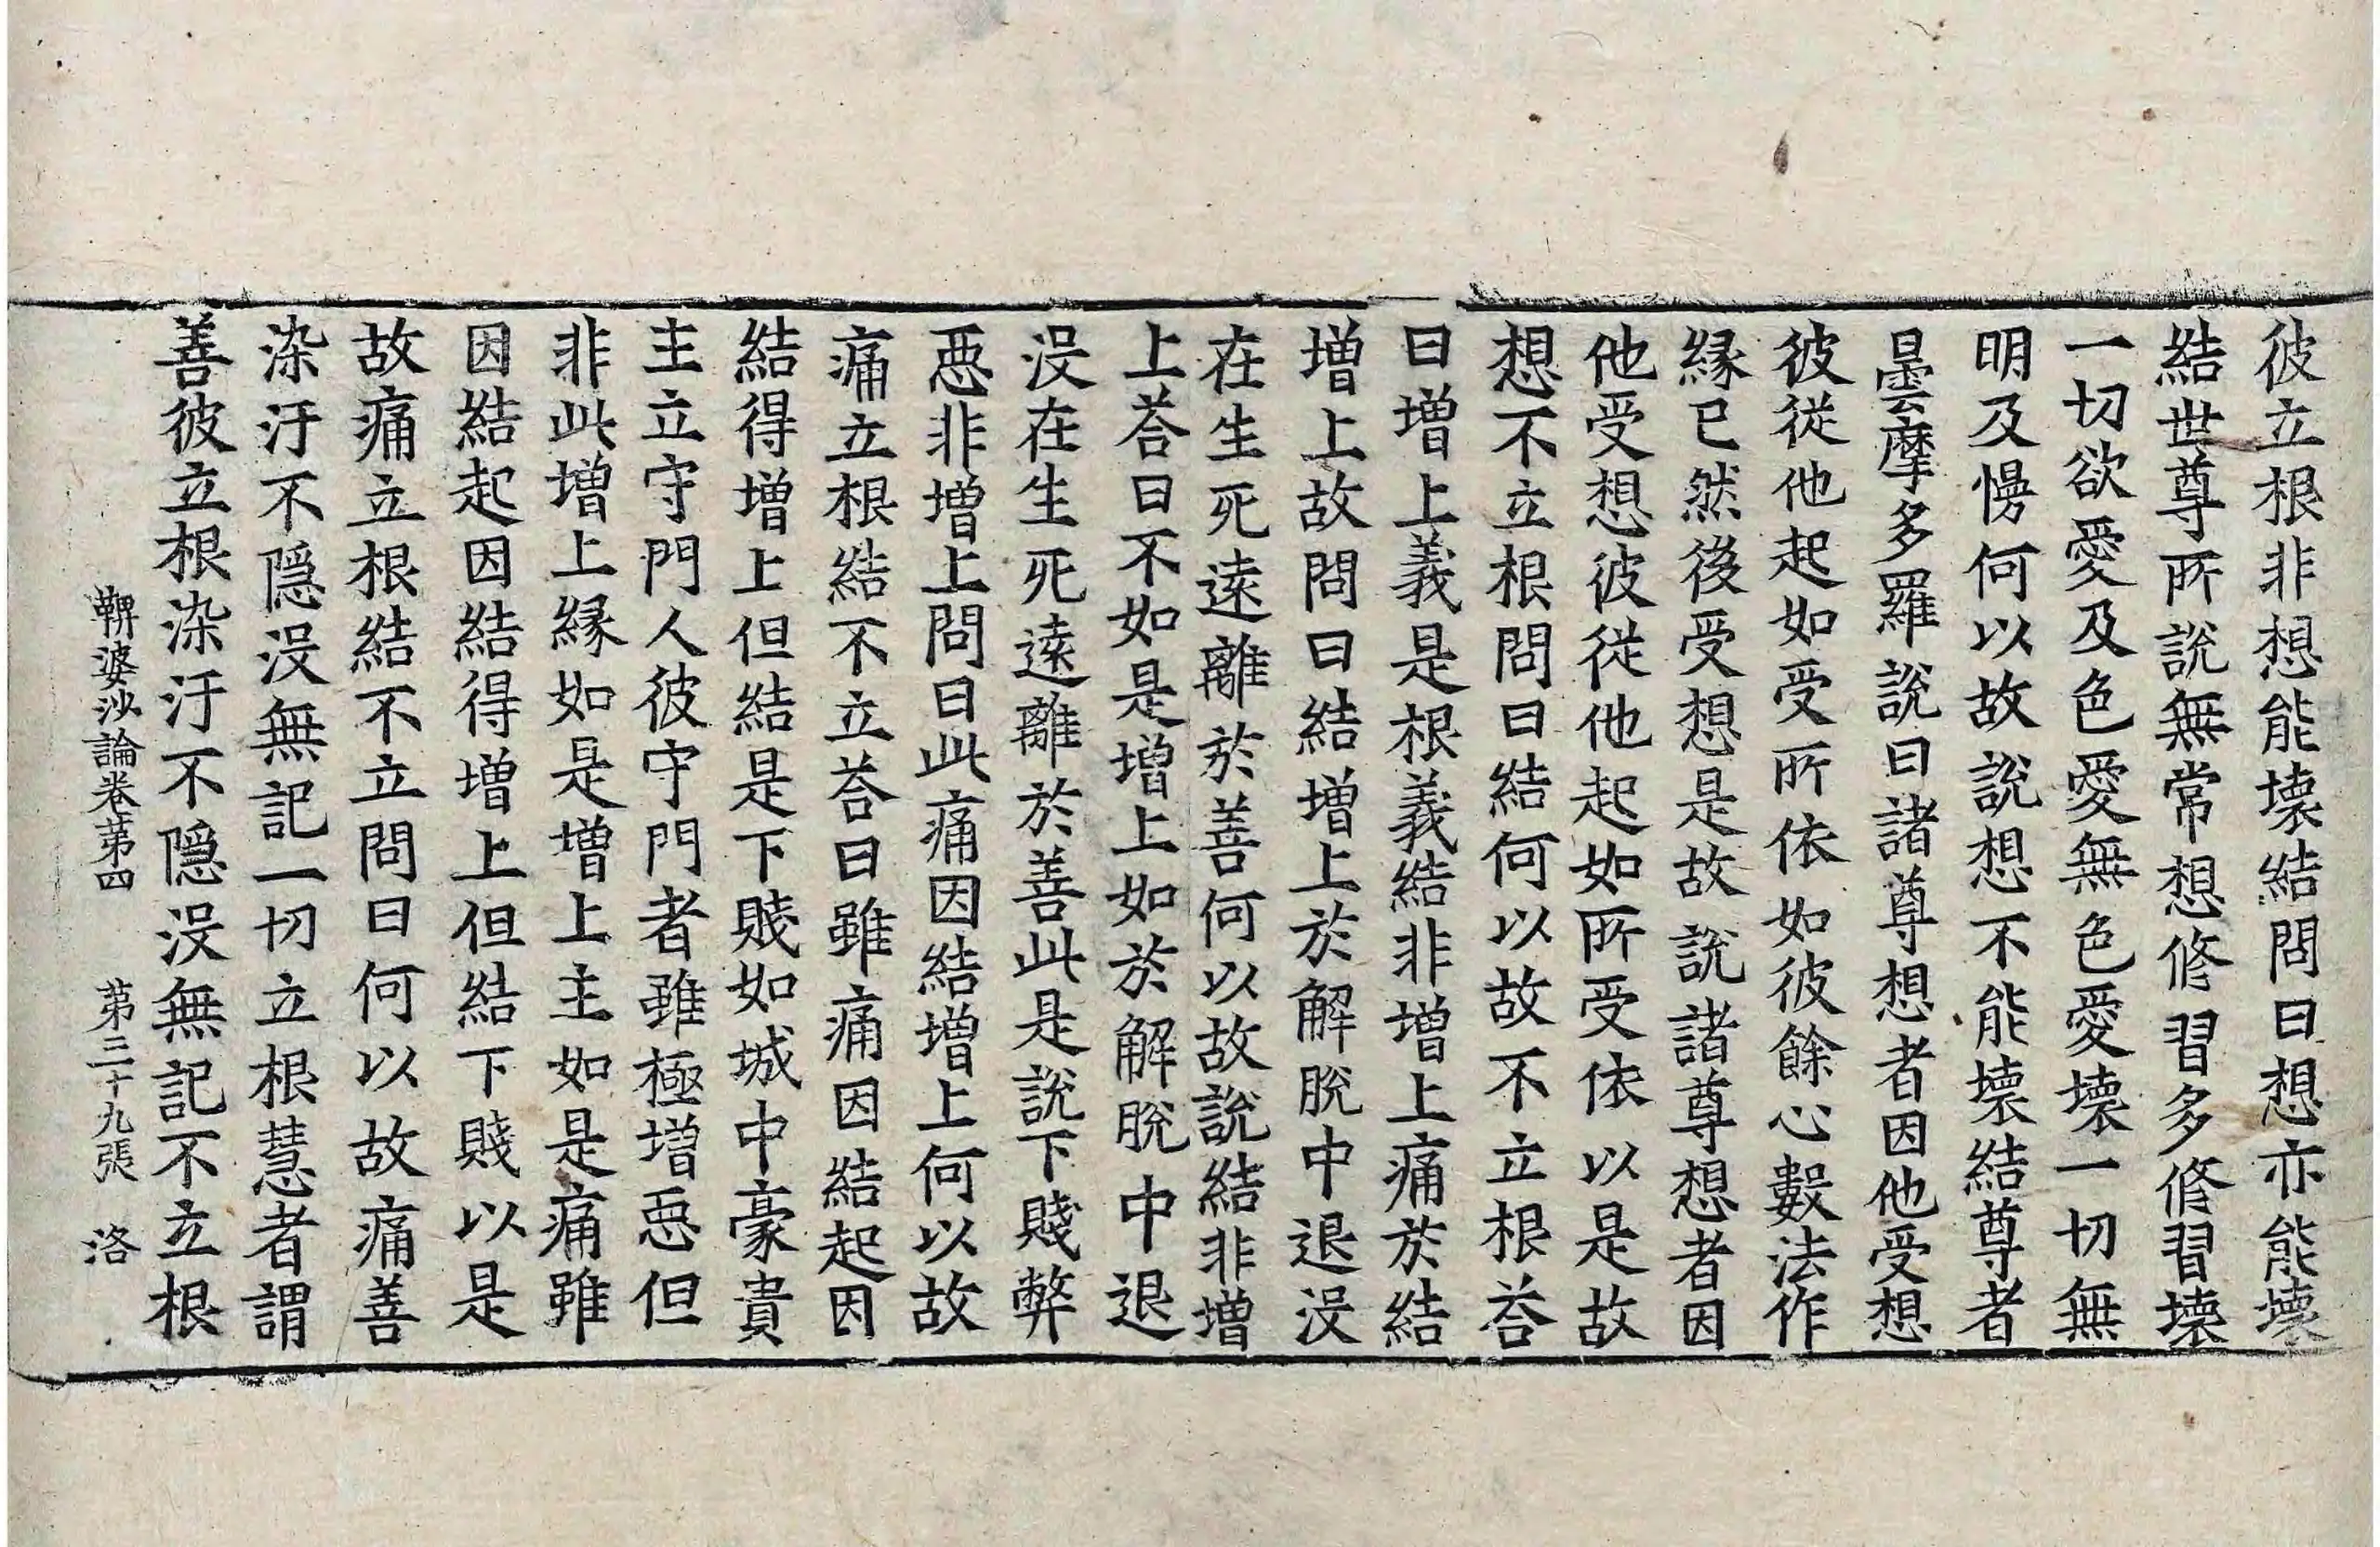 彼立根非想能壞結問曰想亦能壞
結世尊所說無常想修習多修習壞
一切欲愛及色愛無色愛壞一切無
明及慢何以故說想不能壞結尊者
曇摩多羅說曰諸尊想者因他受想
彼從他起如受所依如彼餘心數法作
緣已然後受想是故說諸尊想者因
他受想彼從他起如所受依以是故
想不立根問曰結何以故不立根荅
曰增上義是根義結非增上痛於結
增上故問曰結增上於解脫中退沒
在生死遠離於善何以故說結非增
上荅曰不如是增上如於解脫中退
沒在生死遠離於善此是說下賤弊
惡非增上問曰此痛因結增上何以故
痛立根結不立荅曰雖痛因結起因
結得增上但結是下賤如城中豪貴
主立守門人彼守門者雖極增惡但
非此增上緣如是增上主如是痛雖
因結起因結得增上但結下賤以是
故痛立根結不立問曰何以故痛善
染汙不隱沒無記一切立根慧者謂
善彼立根染汙不隱沒無記不立根
鞞婆沙論卷苐四 苐三十九張 洛